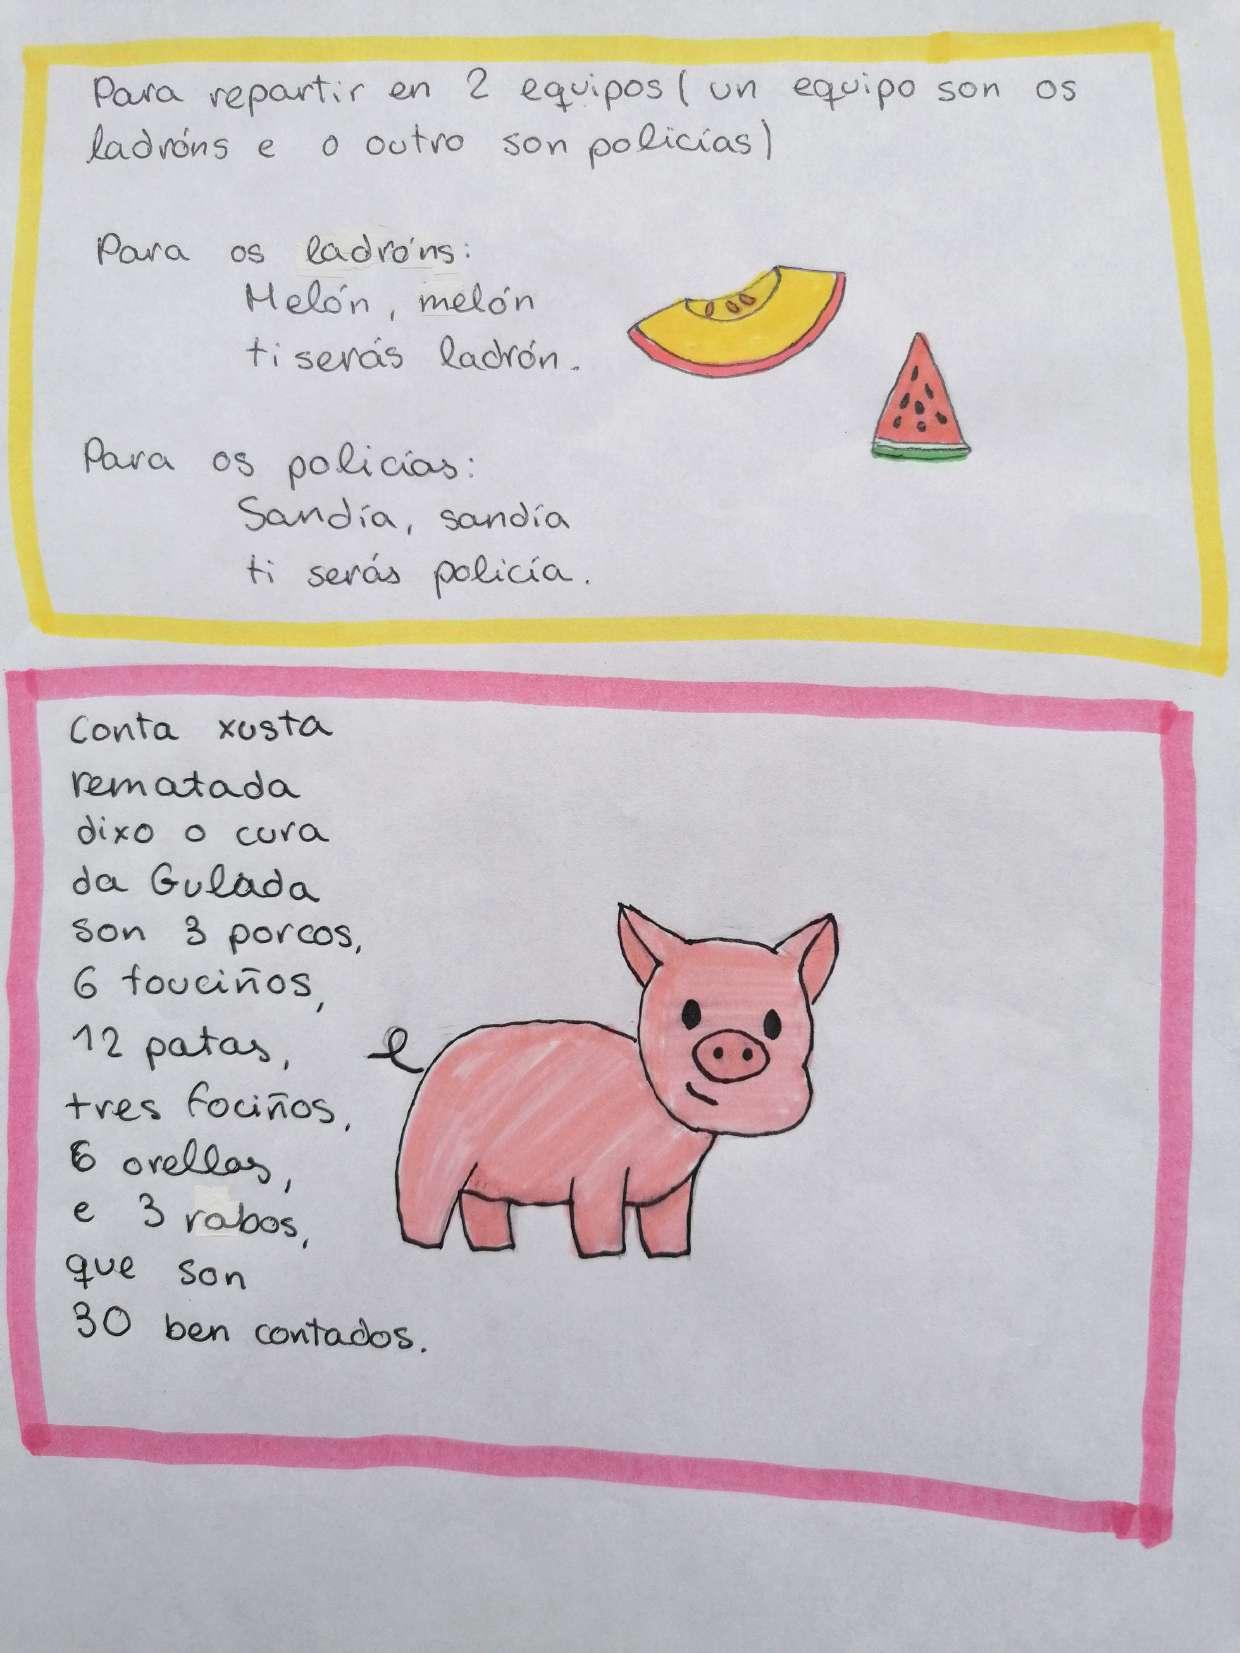 Para repartir en 2 equipos ( un equipo son os
ladróns e o outro son policías)
Para os ladróns:
Melón, melón
ti serás ladrón.
Para os policías:
Sandía, sandía
ti serás policía.
Conta xusta
rematada
dixo o cura
da Gulada
son 3 porcos,
6 touciños,
12 patas,
tres fociños,
6 orellas,
e 3 rabos,
que son
30 ben contados.